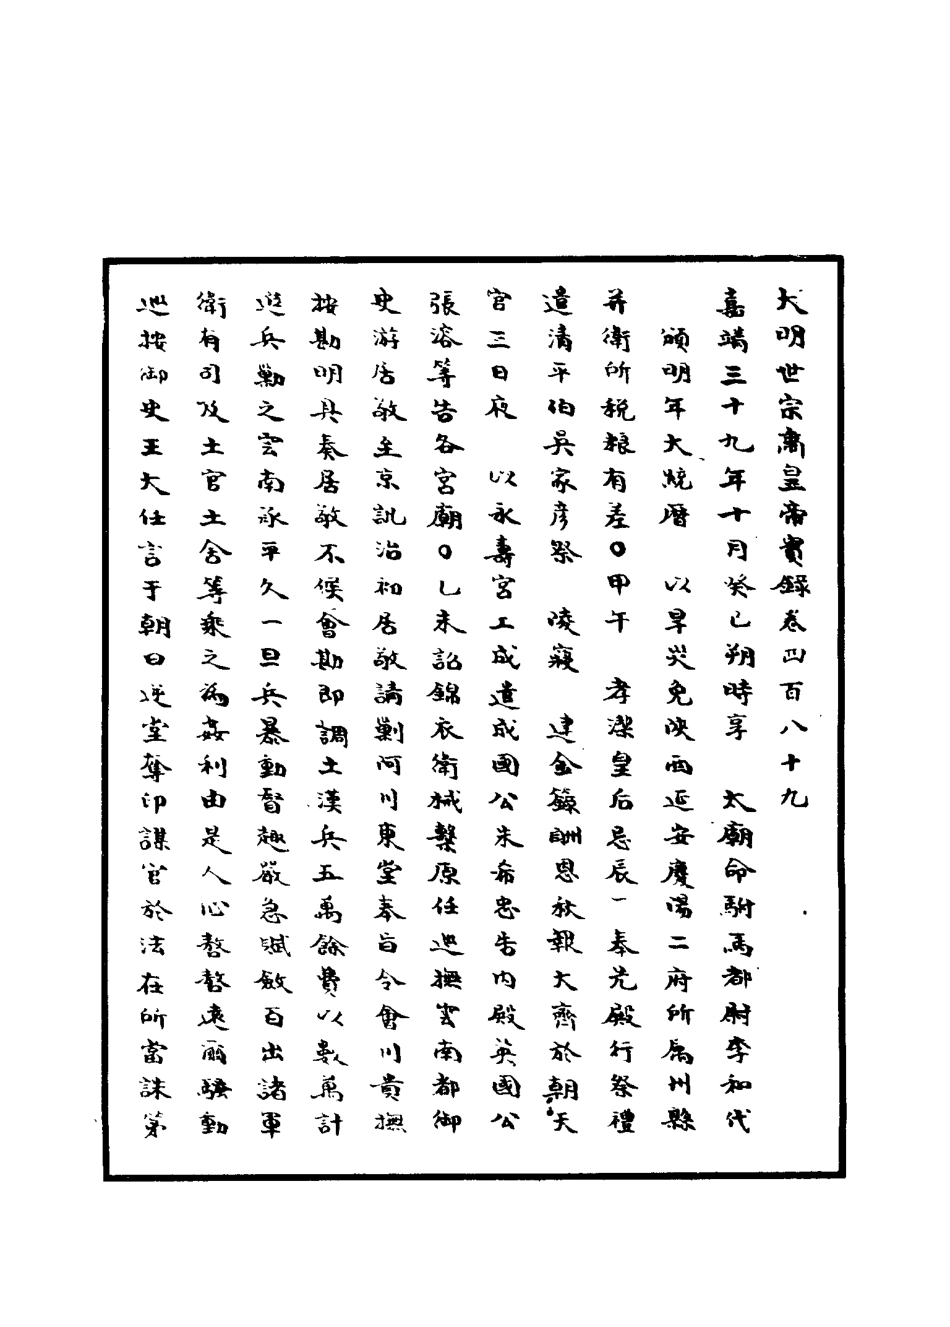 大明世宗肅皇帝實錄卷四百八十九
嘉靖三十九年十月癸巳朔時享　太廟命駙馬都尉李和代
頒明年大統曆　以旱災免陝西延安慶陽二府所属州縣
并衛所稅粮有差○甲午　孝潔皇后忌辰一奉先殿行祭禮
遣清平伯吳家彥祭　陵寢　建金籙酬恩秋報大齊於朝天
宮三日夜　以永壽宮工成遣成國公朱希忠告內殿英國公
張溶等告各宮廟○乙未詔錦衣衛械繫原任巡撫雲南都御
史游居敬至京訊治初居敬請剿阿川東堂奉旨令會川貴撫
按勘明具奏居敬不俟會勘即調土漢兵五萬餘費以數萬計
遊兵勦之雲南承平久一旦兵暴動督趣嚴急賦斂百出諸軍
衛有司及土官土舍等乘之為姦利由是人心嗸嗸遠爾騷動
巡按御史王大任言于朝曰逆堂奪印謀官於法在所當誅第